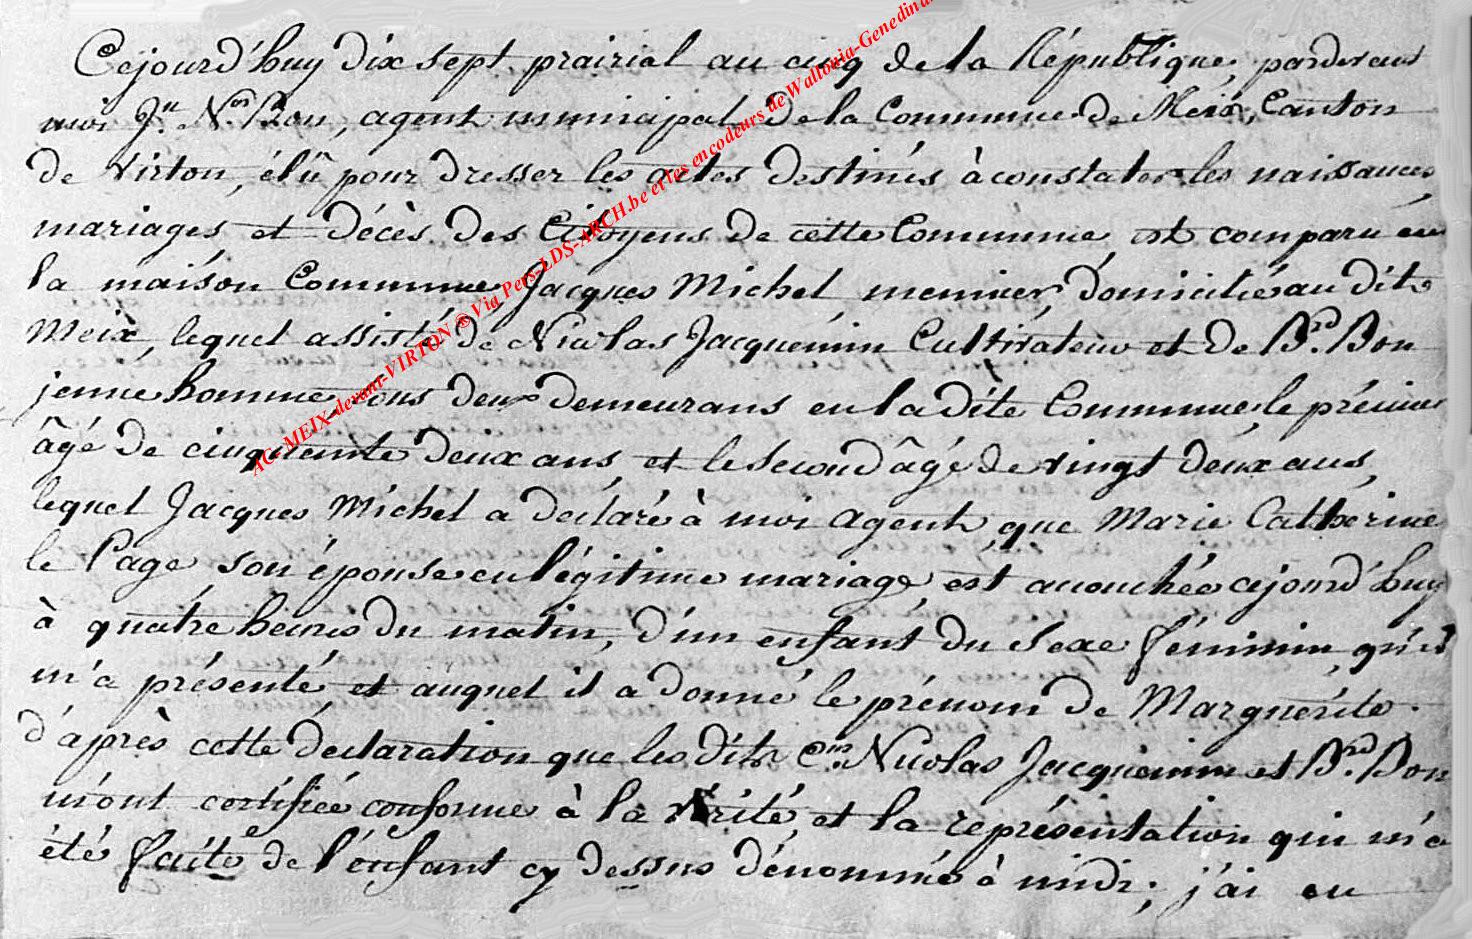 Cejourd'huy dix sept prairial an cinq de la République, pardevant
moi Jn. Nas. Bon, agent municipal de la Commune de Meix, Canton
de Virton, élû pour dresser les actes destinés à constater les naissances
mariages et décès des Citoyens de cette Commune est comparu en
la maison Commune Jacques Michel meunier domicilié au dit
Meix, lequel assisté de Nicolas Jacquemin Cultivateur et de Bd. Bon
jeune homme, tous deux demeurans en la dite Commune, le prémier
âgé de cinquante deux ans, et le second âgé de vingt deux ans,
lequel Jacques Michel a déclaré à moi agent que Marie Catherine
le Page son épouse en légitime mariage est accouchée cejourd'huy
à quatre heures du matin, d'un enfant du Sexe féminin, qu'il
m'a présenté et auquel il a donné le prénom de Marguérite.
d'après cette déclaration que les dits Cens. Nicolas Jacquemin et Bd. Bon
m'ont certifiée conforme à la vérité, et la représentation qui m'a
été faite de l'énfant cy dessus dénommé à midi; j'ai en
AC-MEIX-devant-VIRTON ® Via Pers-LDS-ARCH.be et les encodeurs de Wallonia-Genedinan